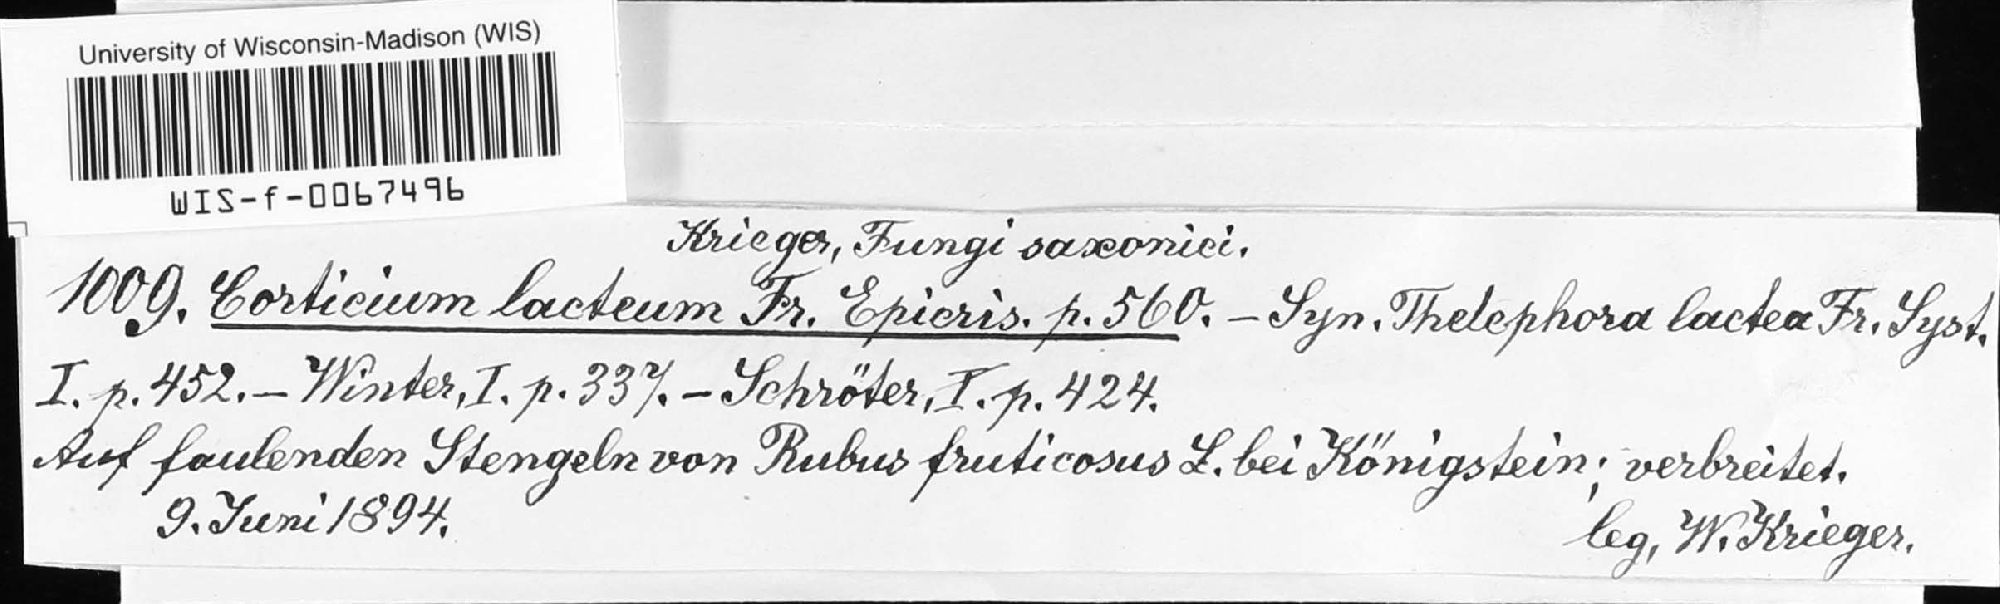 University of Wisconsin-Madison (WIS)
WIS-f-0067496
Krieger, Fungi saxonici.
1009. Corticium lacteum Fr. Epicris. p. 560. – Syn. Thelephora lactea Fr. Syst.
I. p. 452. – Winter, I. p. 337. – Schröter, I. p. 424.
Auf faulenden Stengeln von Rubus fruticosus L. bei Königstein; verbreitet.
9. Juni 1894.
leg, W. Krieger.